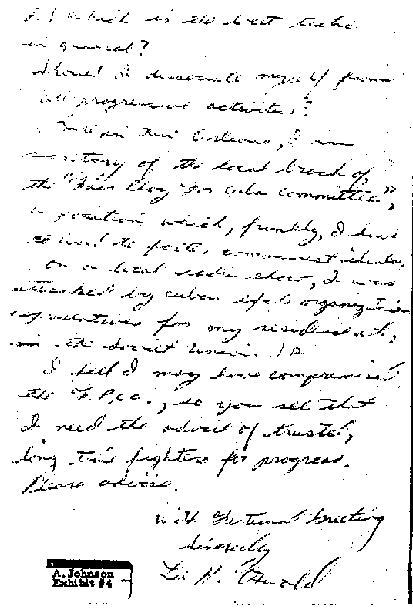 which is the best tactic
in general?
Should I dissociate myself from
all progressive activities?
Here in New Orleans, I am
secretary of the local branch of
the "Fair Play for Cuba Committee",
a position which, frankly, I have
used to foster communist ideals.
on a local radio show, I was
attacked by cuban exile organization
representatives for my residence etc,
in the Soviet Union.
I feel I may have compromised
the F.P.C.C., so you see that
I need the advice of trusted,
long time fighters for progress.
Please advise.
with Fraternal Greeting
Sincerely
Lee H. Oswald
A. Johnson
Exhibit #4